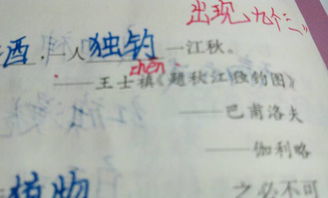 出现九个"三"
酒,一人独钓一江秋。
zhēn
——王士禛《题秋江独钓图》
——巴甫洛夫
——伽利略
植物 之必不可